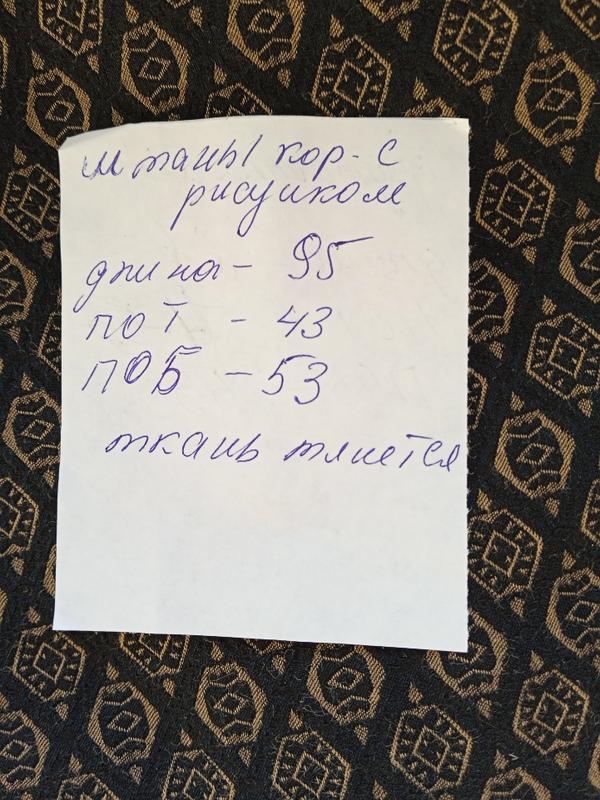 штаны кор. с
рисунком
длина - 95
ПОТ - 43
ПОБ - 53
ткань тянется